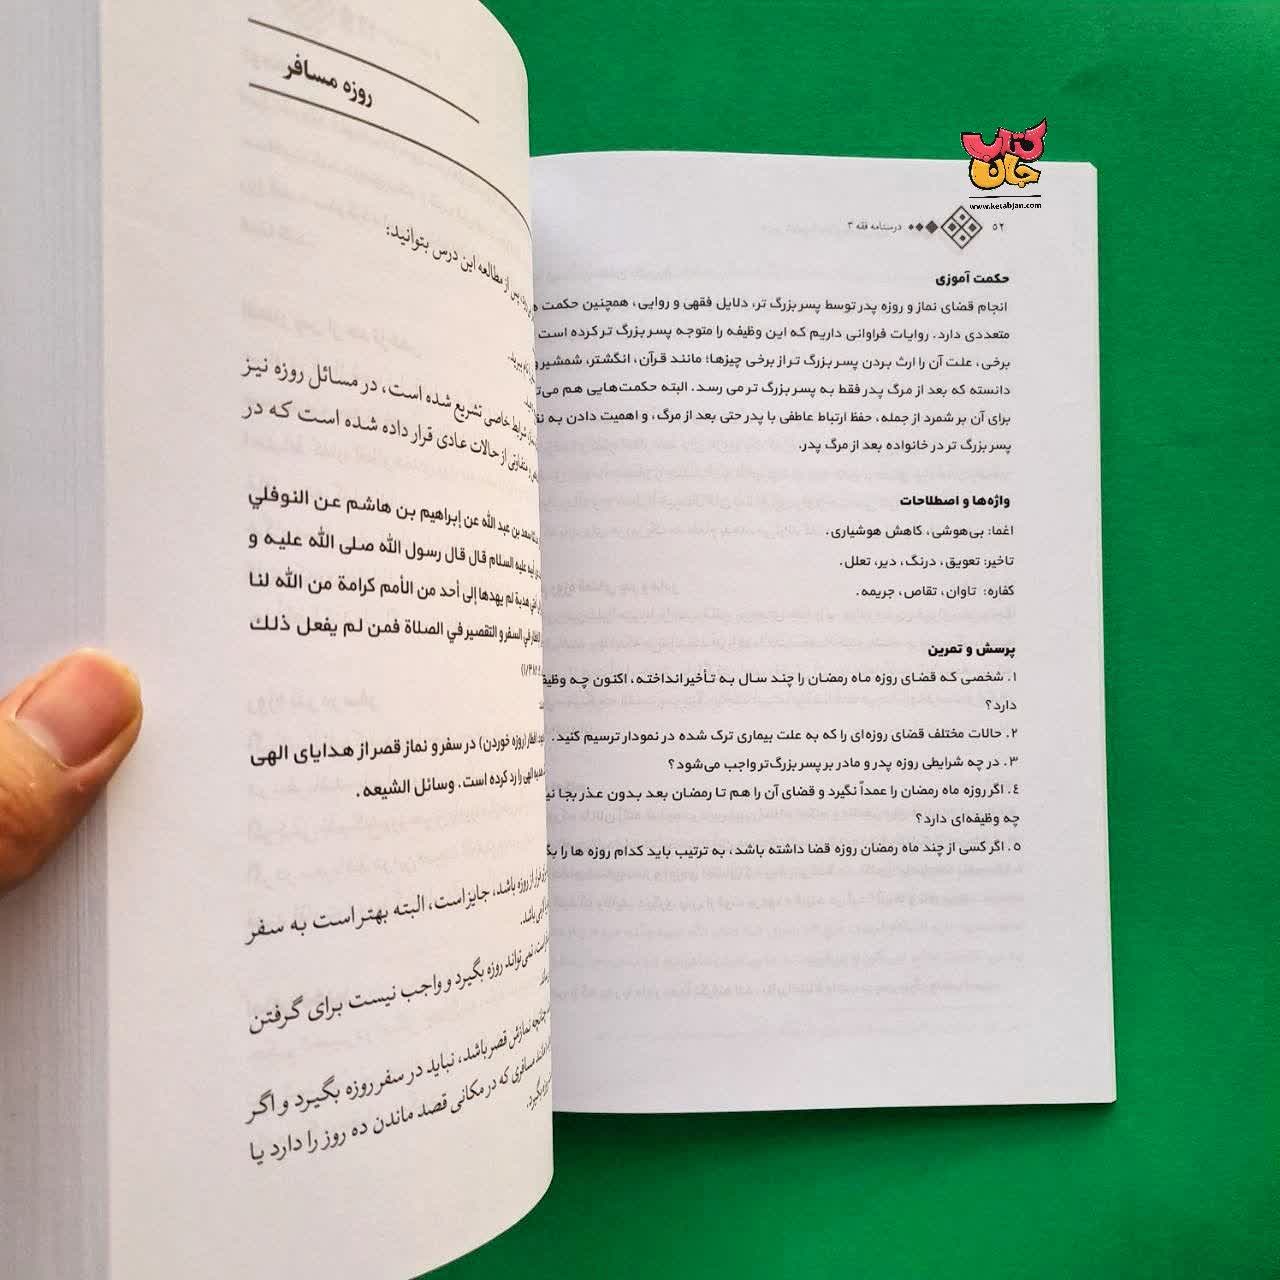 کتاب جان
www.ketabjan.com
۵۲ درسنامه فقه ۳
حکمت آموزی
انجام قضای نماز و روزه پدر توسط پسر بزرگ تر، دلایل فقهی و روایی، همچنین حکمت
متعددی دارد. روایات فراوانی داریم که این وظیفه را متوجه پسر بزرگ تر کرده است
برخی، علت آن را ارث بردن پسر بزرگ تر از برخی چیزها؛ مانند قرآن، انگشتر، شمشیر و
دانسته که بعد از مرگ پدر فقط به پسر بزرگ تر می رسد. البته حکمت‌هایی هم
برای آن بر شمرد از جمله، حفظ ارتباط عاطفی با پدر حتی بعد از مرگ، و اهمیت دادن به
پسر بزرگ تر در خانواده بعد از مرگ پدر.
واژه‌ها و اصطلاحات
اغما: بی‌هوشی، کاهش هوشیاری.
تاخیر: تعویق، درنگ، دیر، تعلل.
کفاره: تاوان، تقاص، جریمه.
پرسش و تمرین
۱. شخصی که قضای روزه ماه رمضان را چند سال به تأخیر انداخته، اکنون چه
دارد؟
۲. حالات مختلف قضای روزه‌ای را که به علت بیماری ترک شده در نمودار ترسیم کنید.
۳. در چه شرایطی روزه پدر و مادر بر پسر بزرگ‌تر واجب می‌شود؟
٤. اگر روزه ماه رمضان را عمداً نگیرد و قضای آن را هم تا رمضان بعد بدون عذر بجا
چه وظیفه‌ای دارد؟
۵. اگر کسی از چند ماه رمضان روزه قضا داشته باشد، به ترتیب باید کدام روزه ها را
روزه مسافر
پس از مطالعه این درس بتوانید:
شرایط خاصی تشریع شده است، در مسائل روزه نیز
متفاوتی از حالات عادی قرار داده شده است که در
سعد بن عبد الله عن إبراهیم بن هاشم عن النوفلي
علیه السلام قال قال رسول الله صلی الله علیه و
هدیة لم یهدها إلی أحد من الأمم کرامة من الله لنا
في السفر و التقصیر في الصلاة فمن لم یفعل ذلک
افطار (روزه خوردن) در سفر و نماز قصر از هدایای الهی
الهی را رد کرده است. وسائل الشیعه.
از روزه باشد، جایز است، البته بهتر است به سفر
باشد.
است، نمی‌تواند روزه بگیرد و واجب نیست برای گرفتن
چنانچه نمازش قصر باشد، نباید در سفر روزه بگیرد و اگر
مانند مسافری که در مکانی قصد ماندن ده روز را دارد یا
بگیرد.